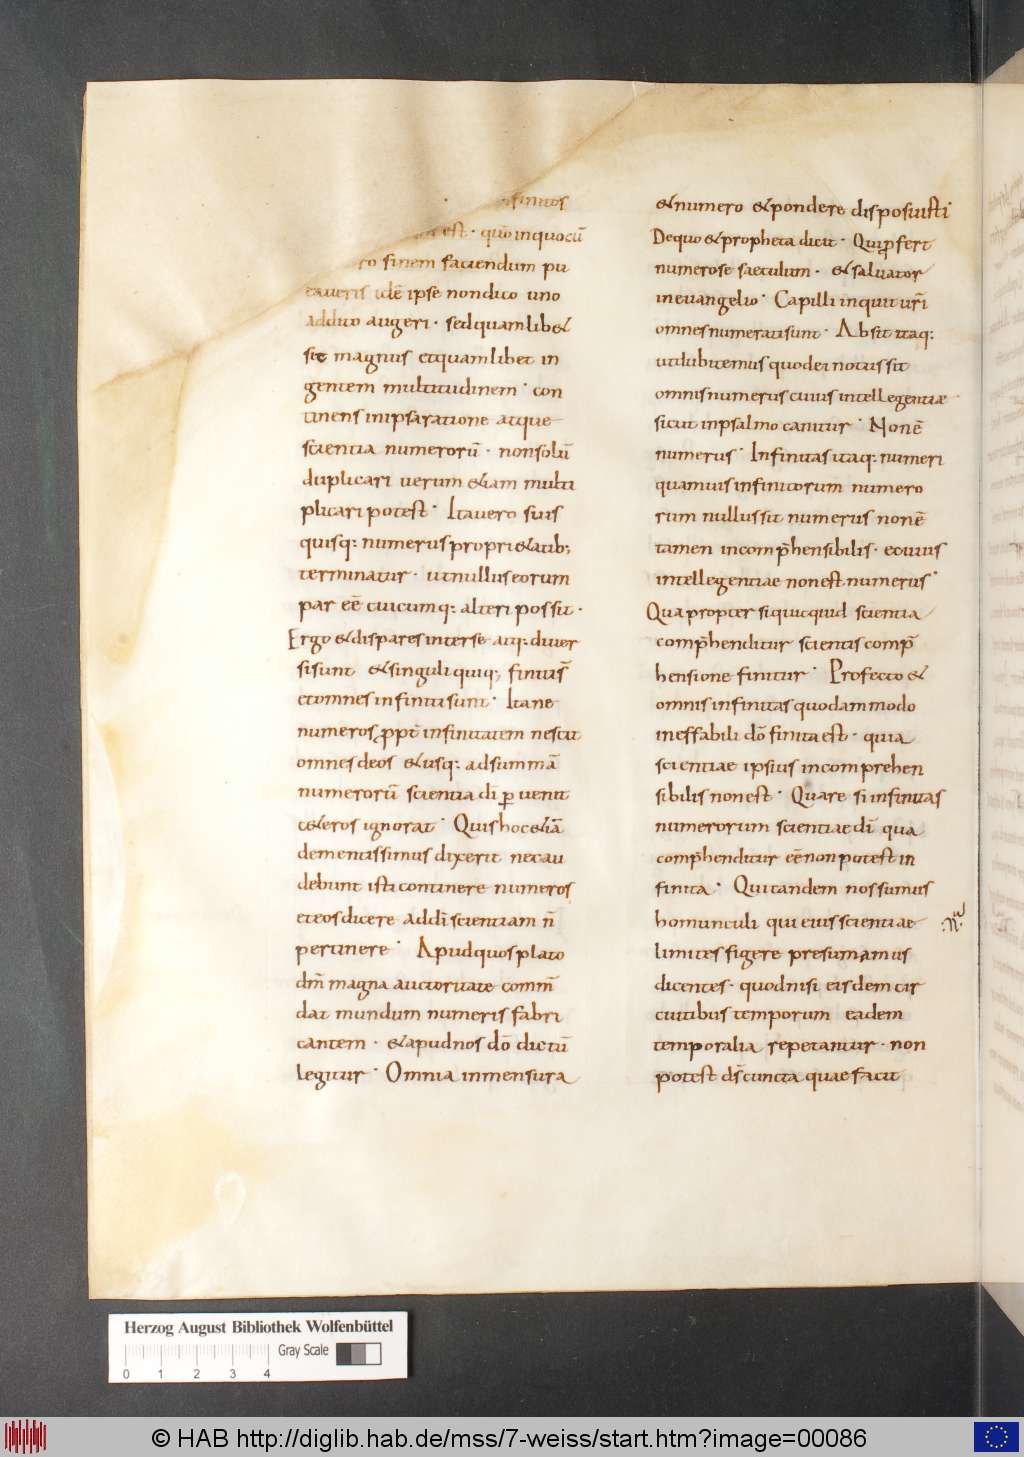 finitos
est · quō inquocū
ro finem faciendum pu
taueris idē ipse nondico uno
addito augeri · sedquamlib&
sit magnus etquamlibet in
gentem multitudinem · con
tinens inipsaratione atque
scientia numerorū · nonsolū
duplicari uerum &iam multi
plicari potest · Itauero suis
quisq: numerus propri&atib;
terminatur · utnulluseorum
par eē cuicumq: alteri possit ·
Ergo &dispares interse atq: diuer
si sunt &singuli quiq; finiti s̄
etomnes infiniti sunt · Itane
numeros ꝓpt̄ infinitatem nescit
omnes deos &usq: adsummā
numerorū scientia dī ꝑuenit
c&eros ignorat · Quis hoc &iā
dementissimus dixerit necau
debunt isti continere numeros
eteosdicere addī scientiam ñ
pertinere · Apudquos plato
dm̄ magna auctoritate comm̄
dat mundum numeris fabri
cantem · &apudnos dō dictū
legitur · Omnia inmensura
&numero &pondere disposuisti
Dequo &propheta dicit · Qui ꝓfert
numerose saeculum · &saluator
ineuangelio · Capilli inquit ur̄i
omnes numerati sunt · Absit itaq:
utdubitemus quodei notus sit
omnis numerus cuius intellegentiæ
sicut inpsalmo canitur · Nonē
numerus · Infinitas itaq: numeri
quamuis infinitorum numero
rum nullus sit numerus nonē
tamen incomp̄hensibilis · ei cuius
intellegentiae nonest numerus ·
Quapropter si quicquid scientia
comp̄henditur scientis comp̄
hensione finitur · Profecto &
omnis infinitas quodammodo
ineffabili dō finita est · quia
scientiae ipsius incomprehen
sibilis nonest · Quare si infinitas
numerorum scientiae dī qua
comp̄henditur eē nonpotest in
finita · Qui tandem nos sumus
homunculi qui eius scientiae
limites figere presumamus
dicentes · quodnisi eisdem cir
cuitibus temporum eadem
temporalia repetantur · non
potest ds̄ cuncta quae facit
Herzog August Bibliothek Wolfenbüttel
Gray Scale
0 1 2 3 4
© HAB http://diglib.hab.de/mss/7-weiss/start.htm?image=00086